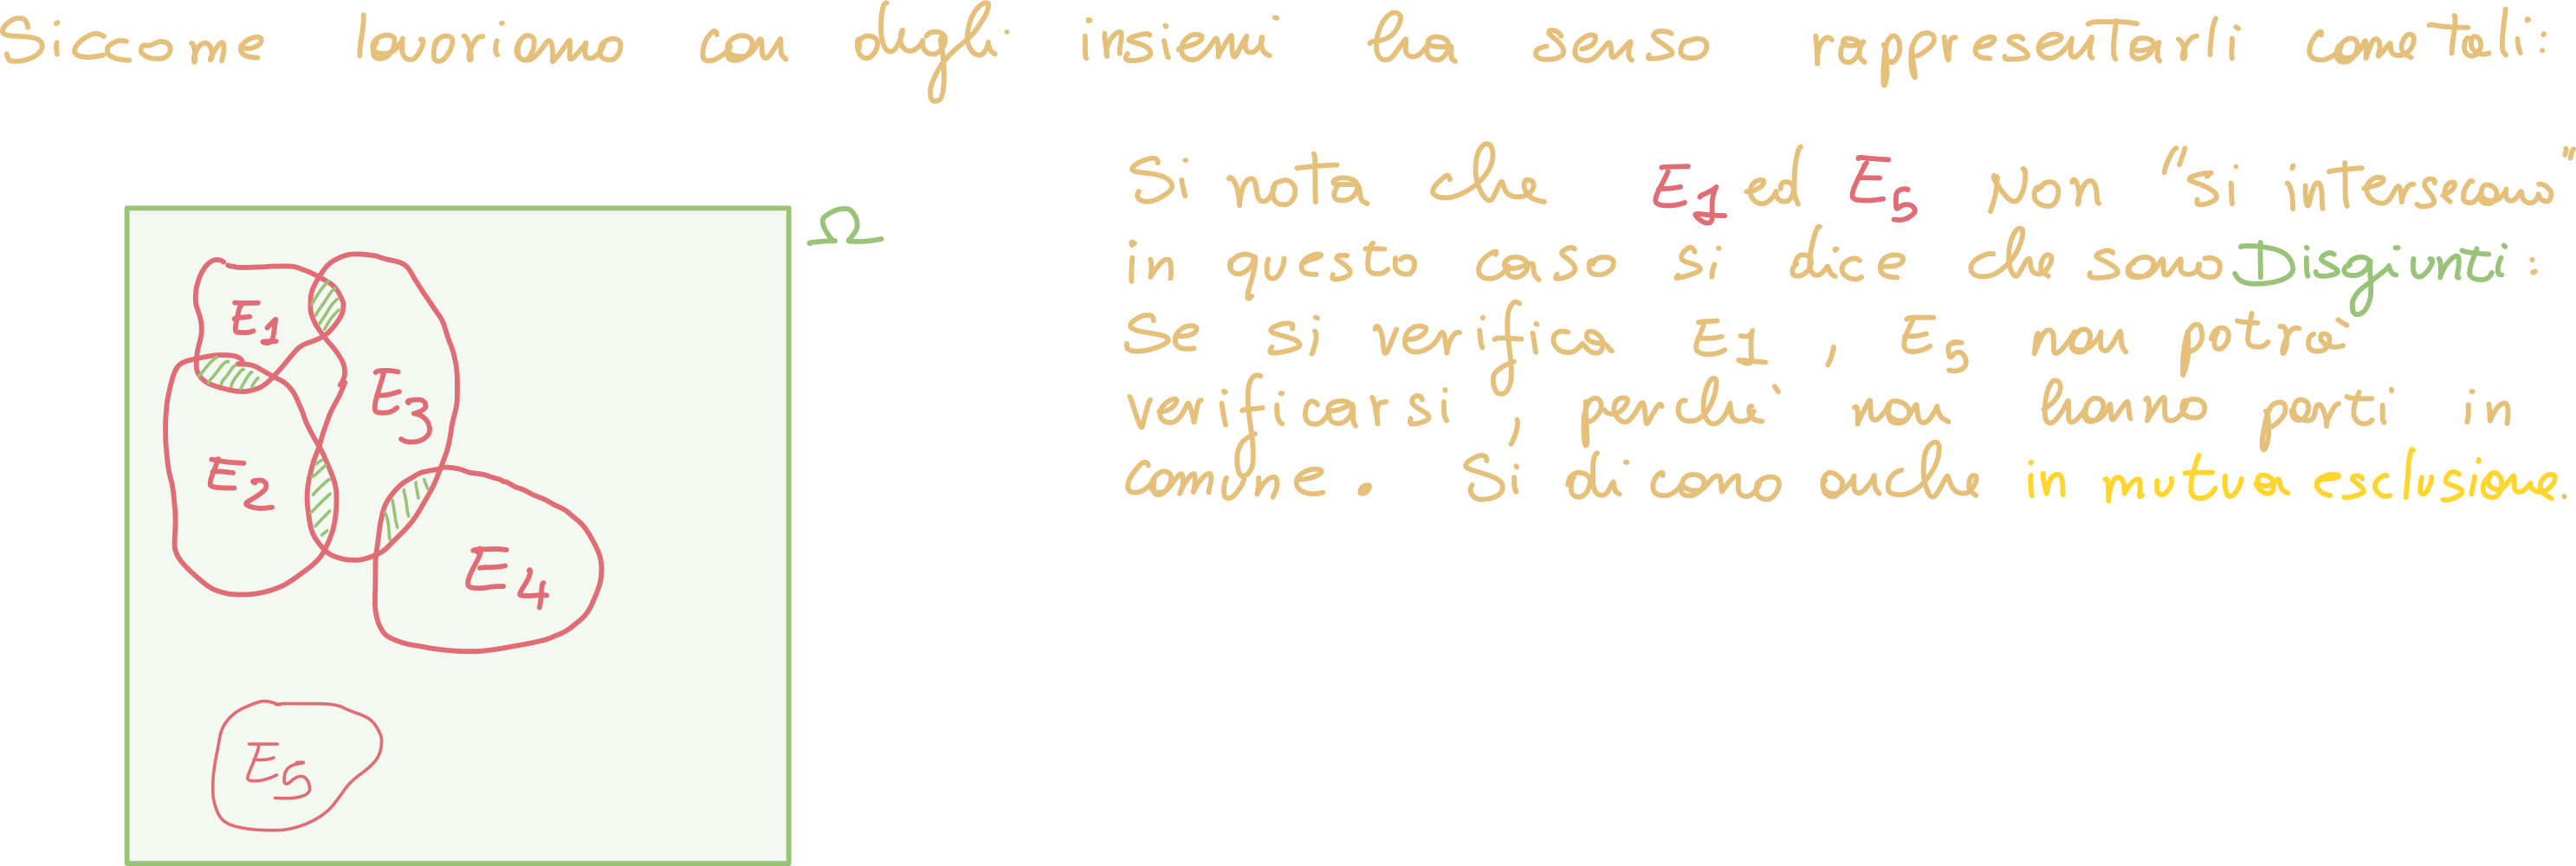 Siccome lavoriamo con degli insiemi ha senso rappresentarli come tali:
Si nota che E1 ed E5 Non "si intersecano"
in questo caso si dice che sono Disgiunti:
Se si verifica E1, E5 non potrà
verificarsi, perchè non hanno parti in
comune. Si dicono anche in mutua esclusione.
Ω
E1
E3
E2
E4
E5